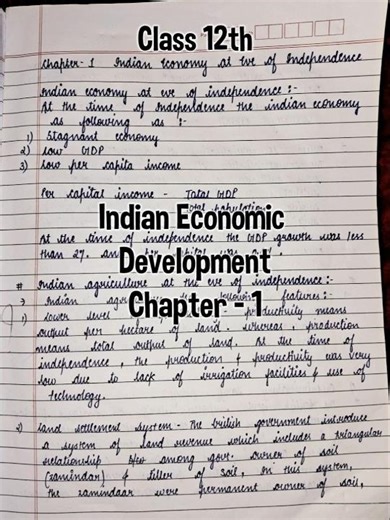 Class 12th
Chapter- 1 Indian Economy at Eve of Independence
Indian economy at eve of independence :-
At the time of Independence the indian economy
as following as :-
1) Stagnant economy
2) Low GDP
3) Low per capita income
Per capital income - Total GDP
Total population
Indian Economic
At the time of independence the GDP growth was less
than 2%. and
Development
# Indian agriculture at the eve of independence :-
→ Indian features :-
Chapter - 1
1) Lower level productivity means
output per hectare of land. whereas, production
means total output of land. At the time of
independence, the production & productivity was very
low due to lack of irrigation facilities & use of
technology.
2) Land settlement system - The british government introduce
a system of land revenue which includes a triangular
relationship b/w among govt. owner of soil
(zamindar) & tiller of soil, in this system,
the zamindaar were permanent owner of soil,